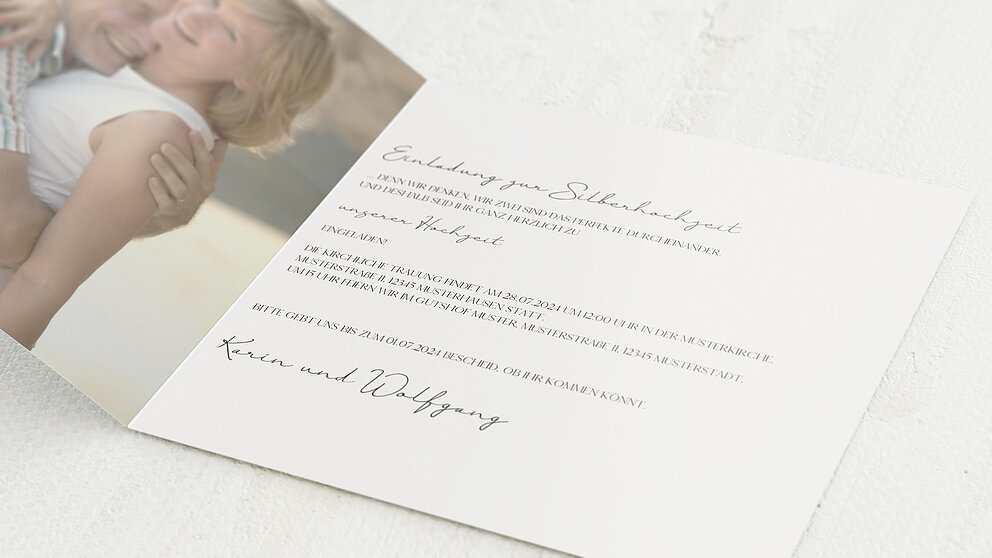 Einladung zur Silberhochzeit
... DENN WIR DENKEN, WIR ZWEI SIND DAS PERFEKTE DURCHEINANDER.
UND DESHALB SEID IHR GANZ HERZLICH ZU
unserer Hochzeit
EINGELADEN!
DIE KIRCHLICHE TRAUUNG FINDET AM 28.07.2024 UM 12:00 UHR IN DER MUSTERKIRCHE,
MUSTERSTRAßE 11, 12345 MUSTERHAUSEN STATT.
UM 15 UHR FEIERN WIR IM GUTSHOF MUSTER, MUSTERSTRAßE 11, 12345 MUSTERSTADT.
BITTE GEBT UNS BIS ZUM 01.07.2024 BESCHEID, OB IHR KOMMEN KÖNNT.
Karin und Wolfgang